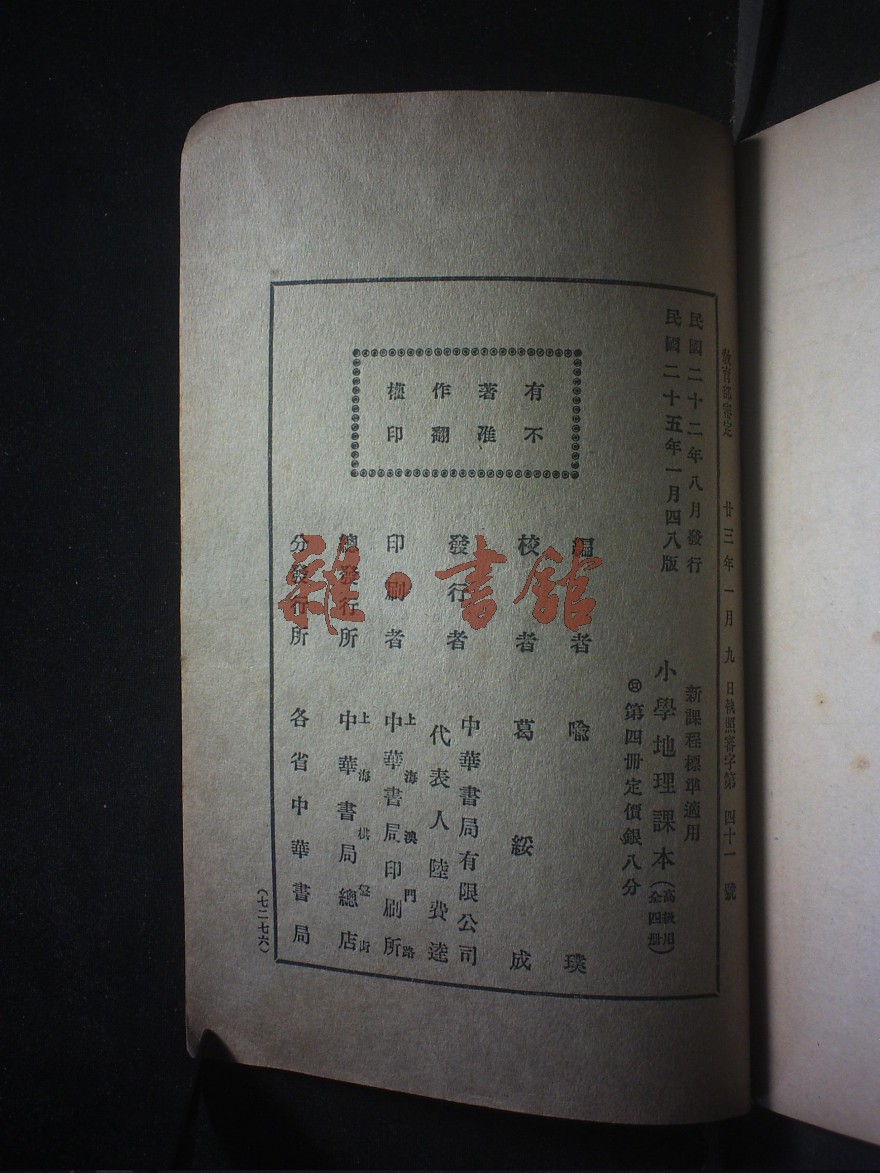 教育部審定 廿三年一月九日執照審字第四十一號
民國二十二年八月發行
民國二十五年一月四八版
新課程標準適用
小學地理課本（高級用全四冊）
第四冊定價銀八分
有著作權
不准翻印
編者 喩璞
校者 葛綏成
發行者 中華書局有限公司
代表人 陸費逵
印刷者 上海澳門路
中華書局印刷所
總發行所 上海棋盤街
中華書局總店
分發行所 各省中華書局
（七二七六）
雜·書館